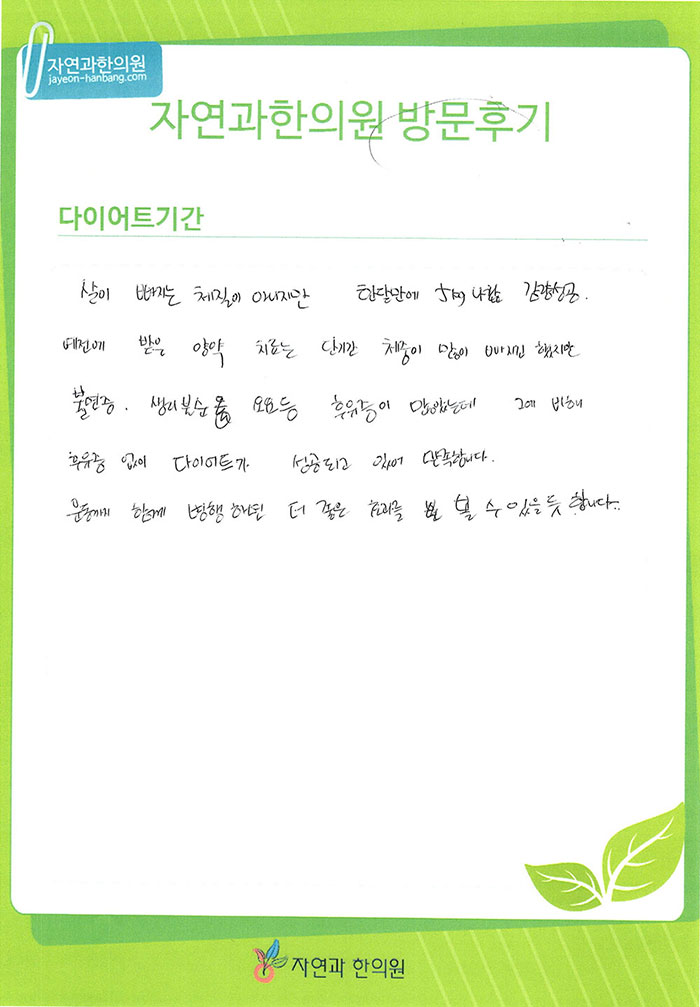 자연과한의원
jayeon-hanbang.com
자연과한의원 방문후기
다이어트기간
살이 빠지는 체질이 아니지만 한달만에 5kg 나 감량성공.
예전에 받은 양약 치료는 단기간 체중이 많이 빠지긴 했지만
불면증. 생리불순 요요등 후유증이 많았는데 그에 비해
후유증 없이 다이어트가 성공되고 있어 만족합니다.
운동까지 함께 병행하면 더 좋은 효과를 볼 수 있을듯 합니다..
자연과 한의원